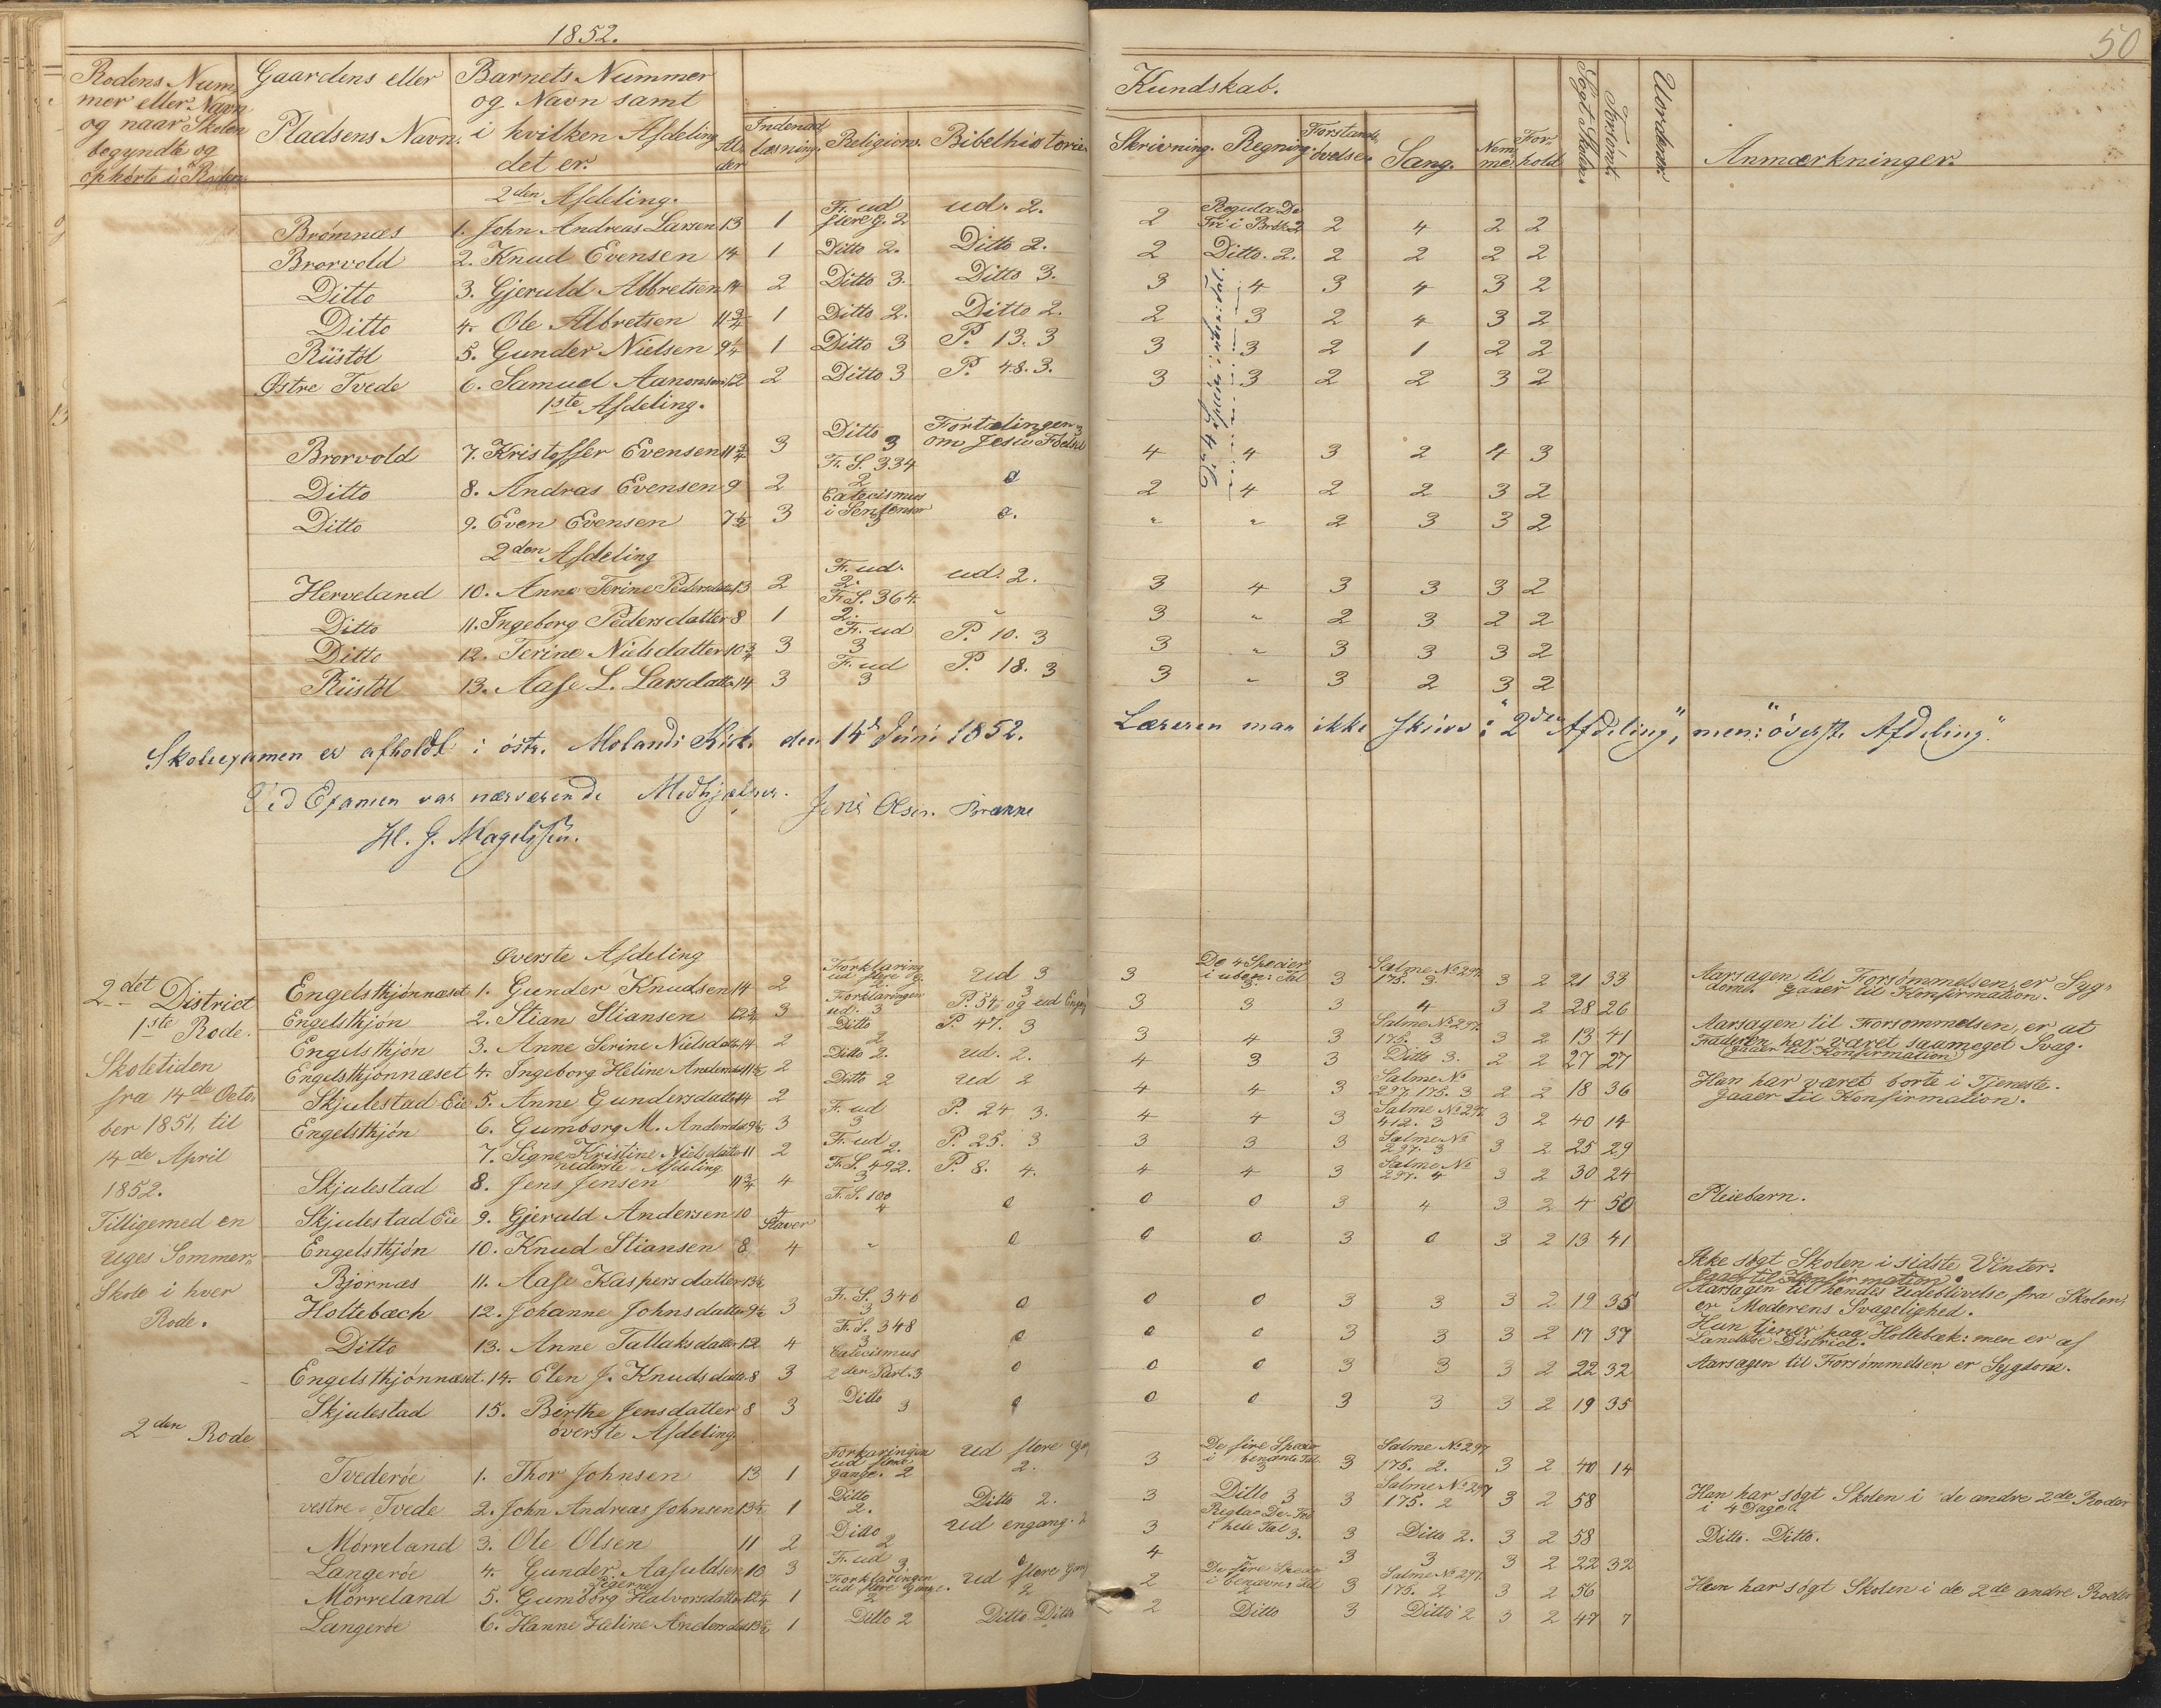 1852.
50
Rodens Num,, Gaardens eller Barnets Nummer Kundskab.
mer eller Navn og Navn samt
og naar Skolen Pladsens Navn. i hvilken Afdeling Al- Indenad Religion. Bibelhistorie Skrivning. Regning. Forstands Sang. Num For- Søgt Skolen Forsømt Uordener. Anmærkninger.
begyndte og det er. der læsning. øvelse. me hold
ophørte i Roden.
2den Afdeling.
Brømnæs 1. John Andreas Larsen 13 1 Fr. ud flere g. 2 ud. 2. 2 Regula De Tri i Brøk 2 2 4 2 2
Brorvold 2. Knud Evensen 14 1 Ditto 2. Ditto 2. 2 Ditto. 2. 2 2 2 2
Ditto 3. Gjeruld Albretsen 14 2 Ditto 3. Ditto 3. 3 4 3 4 3 2
Ditto 4. Ole Albretsen 11 3/4 1 Ditto 2. Ditto 2. 2 3 2 4 3 2
Riistöl 5. Gunder Nielsen 9 1/4 1 Ditto 3 P. 13. 3 3 3 2 1 2 2
Østre Tvede 6. Samuel Aanonsen 12 2 Ditto 3 P. 48. 3. 3 3 2 2 3 2
1ste Afdeling.
Brorvold 7. Kristoffer Evensen 11 3/4 3 Ditto 3 Fortælingen om Jesu Fødsel 3 4 4 3 2 4 3
Ditto 8. Andras Evensen 9 2 Fr. S. 334 2 0 2 4 2 2 3 2
Ditto 9. Even Evensen 7 1/2 3 Catecismus i Sentenser 3 0. " " 2 3 3 2
2den Afdeling
Herveland 10. Anne Terine Pedersdatter 13 2 F. ud. 2. ud. 2. 3 4 3 3 3 2
Ditto 11. Ingeborg Pedersdatter 8 1 F. S. 364. 2. " 3 " 2 3 2 2
Ditto 12. Terine Nielsdatter 10 3/4 3 F. ud 3 P. 10. 3 3 " 3 3 3 2
Riistöl 13. Aase L. Larsdatter 14 3 F. ud 3 P. 18. 3 3 " 3 2 3 2
Skoleexamen er afholdt i östr. Molands Kirk. den 14de Juni 1852. Læreren maa ikke skrive: "2den Afdeling", men: "överste Afdeling".
Ved Examen var nærværende Medhjælper. Jens Olsen Brænne
H. G. Magelssen.
Øverste Afdeling
2det District Engelsthjønnæset 1. Gunder Knudsen 14 2 Forklaring ud flere g. 2 ud 3 3 De 4 Specier i uben: Tal 3. 3 Salme No 297. 175. 3. 3 2 21 33 Aarsagen til Forsømmelsen, er Syg- dom. Gaaer til Konfirmation.
1ste Rode. Engelsthjön 2. Stian Stiansen 12 3/4 3 Forklaringen ud. 3 P. 54, og ud Engang 3 3 3 3 4 3 2 28 26
Engelsthjön 3. Anne Serine Nielsdatter 14 2 Ditto 2 P. 47. 3 3 4 3 Salme No 297. 175. 3 3 2 13 41 Aarsagen til Forsommelsen, er at Faderen har været saameget Svag. (gaaer til Konfirmation)
Skoletiden Engelsthjönnæset 4. Ingeborg Heline Andersdatter 11 1/2 2 Ditto 2. ud. 2. 4 3 3 Ditto 3. 2 2 27 27
fra 14de Octo- Skjulestad Eie 5. Anne Gundersdatter 14 2 Ditto 2 ud 2 4 4 3 Salme No 297. 175. 3 2 2 18 36 Hun har været borte i Tjeneste. Gaaer til Konfirmation.
ber 1851, til Engelsthjön 6. Gumborg M. Andersdatter 9 1/2 3 F. ud 3 P. 24 3. 4 4 3 Salme No 297. 412. 3 3 2 40 14
14de April 7. Signe Kristine Nielsdatter 11 2 F. ud 2. P. 25. 3 3 3 3 Salme No 297. 3 3 2 25 29
nederste Afdeling
1852. Skjulestad 8. Jens Jensen 11 3/4 4 F. S. 492. 3 P. 8. 4. 4 4 3 Salme No 297. 4 3 2 30 24
Tilligemed en Skjulestad Eie 9. Gjeruld Andersen 10 4 Staver F. S. 100 4 0 0 0 3 4 3 2 4 50 Pleiebarn.
uges Sommer- Engelsthjön 10. Knud Stiansen 8 4 " 0 0 0 3 0 3 2 13 41
Skole i hver Bjørnæs 11. Aase Kaspersdatter 13 1/2 Ikke søgt Skolen i sidste Vinter. Gaaer til Konfirmation.
Rode. Holtebæch 12. Johanne Johnsdatter 9 1/2 3 F. S. 340 3 0 0 0 3 3 3 2 19 35 Aarsagen til hendes udeblivelse fra Skolen, er Moderens Svagelighed.
Ditto 13. Anne Tallaksdatter 12 4 F. S. 348 3 0 0 0 3 3 3 2 17 37 Hun tjener paa Holtebæk: men er af District.
Engelsthjönnæset. 14. Elen J. Knudsdatter 8 3 Catecismus 2 den Part. 3 0 0 0 3 3 3 2 22 32 Aarsagen til Forsømmelsen er Sygdom.
Skjulestad 15. Birthe Jensdatter 8 3 Ditto 3 0 0 0 3 3 3 2 19 35
2den Rode överste Afdeling
Tvederöe 1. Thor Johnsen 13 1 Forkaringen ud flere gange. 2 ud flere Gan 2. 3 De fire Specier i benævnte Tal. 3 3 Salme No 297. 175. 2. 3 2 40 14
vestre = Tvede 2. John Andreas Johnsen 13 1/2 1 Ditto 2. Ditto 2. 3 Ditto 3 3 Salme No 297 175. 2 3 2 58 Han har søgt Skolen i de andre 2de Roder i 4 Dage.
Mörreland 3. Ole Olsen 11 2 Ditto 2 ud engang. 2 3 Regla De Tri i hele Tal 3. 3 Ditto 2. 3 2 58 Ditto. Ditto.
Langeröe 4. Gunder Aasuldsen 10 3 F. ud 3 0 4 " 3 3 3 2 22 32
Pigerne
Mörreland 5. Gumborg Halvorsdatter 12 1/4 1 Forklaringen ud flere Gange. 2 ud flere Gang 2 2 De fire Specier i benævnt Tal 2 3 Salme No 297. 175. 2 3 2 56 Hun har søgt Skolen i de 2de andre Roder
Langeröe 6. Hanne Heline Andersdatter 13 1/2 1 Ditto 2 Ditto Ditto 2 Ditto 3 Ditto 2 3 2 47 7